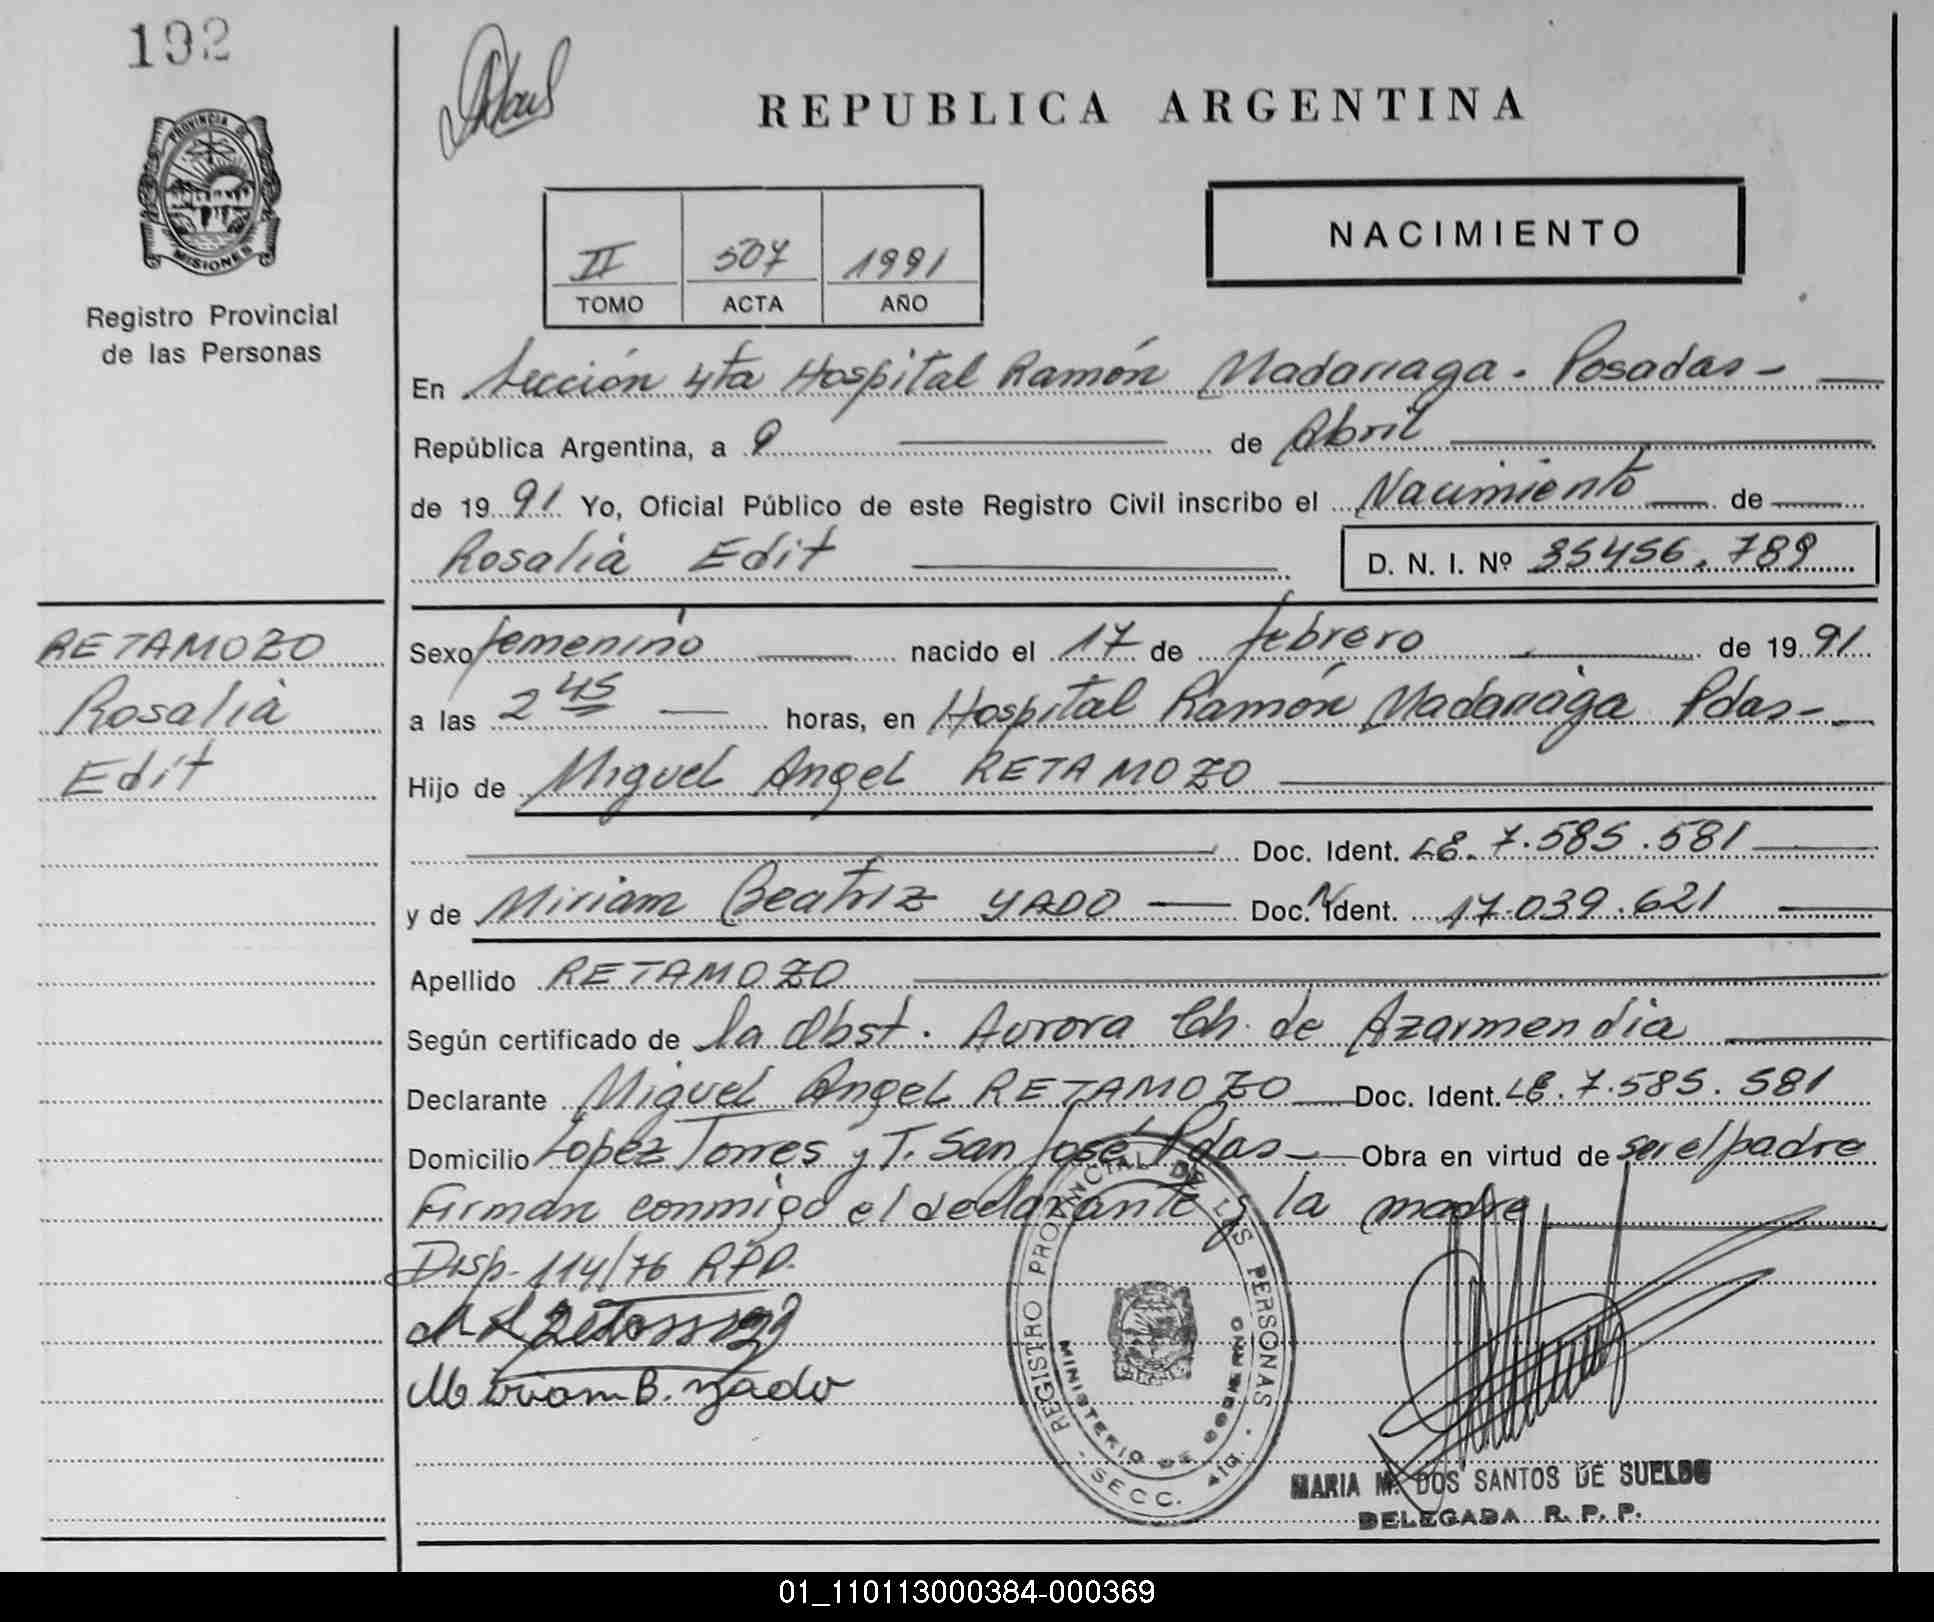 192
PROVINCIA DE
MISIONES
Registro Provincial
de las Personas
REPUBLICA ARGENTINA
NACIMIENTO
II 507 1991
TOMO ACTA AÑO
En Sección 4ta Hospital Ramón Madariaga - Posadas -
República Argentina, a 9 de Abril
de 1991 Yo, Oficial Público de este Registro Civil inscribo el Nacimiento de
Rosalia Edit D. N. I. Nº 35456.789
RETAMOZO
Rosalia
Edit
Sexo femenino nacido el 17 de febrero de 1991
a las 2 45 horas, en Hospital Ramón Madariaga Pdas-
Hijo de Miguel Angel RETAMOZO
Doc. Ident. LE. 7.585.581
y de Miriam Beatriz YADO Doc. Ident. N 17.039.621
Apellido RETAMOZO
Según certificado de la Obst. Aurora Ch. de Azarmendia
Declarante Miguel Angel RETAMOZO Doc. Ident. LE. 7.585.581
Domicilio Lopez Torres y T. San José Pdas - Obra en virtud de ser el padre
Firman conmigo el declarante y la madre
Disp. 114/76 RPP.
Miriam B. Yado
REGISTRO PROVINCIAL DE LAS PERSONAS
MINISTERIO DE GOBIERNO
SECC. 4ta.
MARIA M. DOS SANTOS DE SUELDO
DELEGADA R. P. P.
01_110113000384-000369